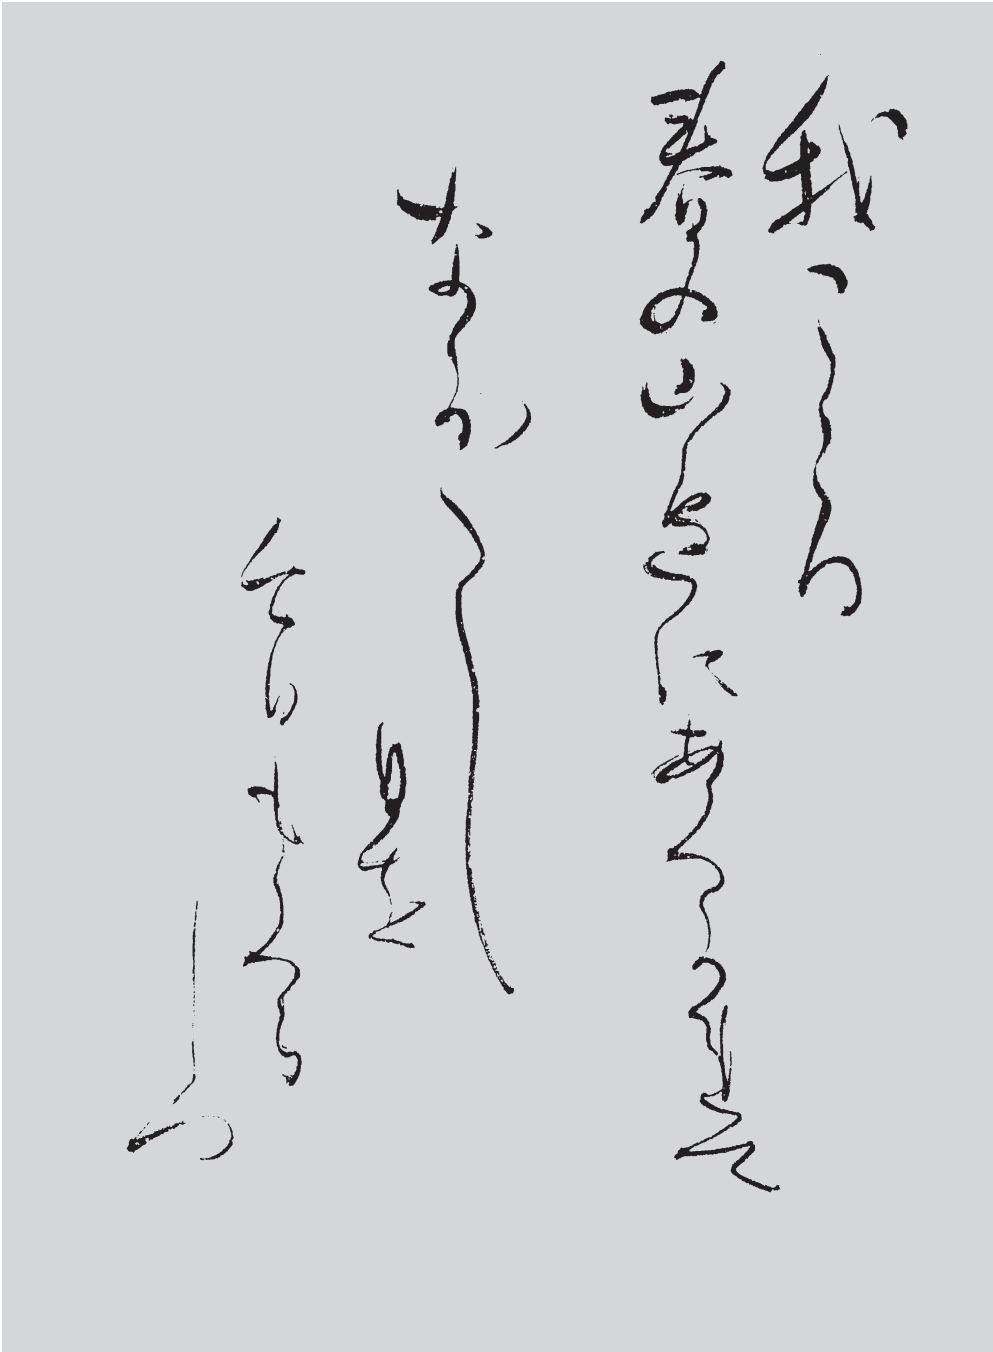 我こゝろ
春の山邊にあくかれて
なか〱し
日を
今日もくら
しつ